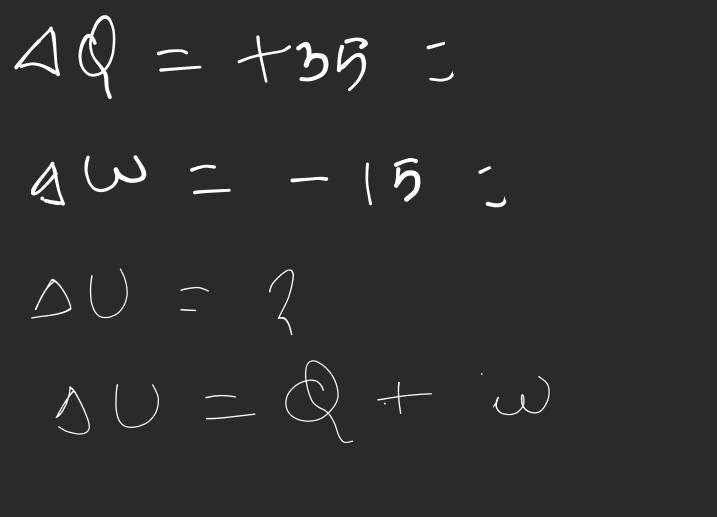 ΔQ = +35 =
ΔW = -15 =
ΔU = ?
ΔU = Q + W